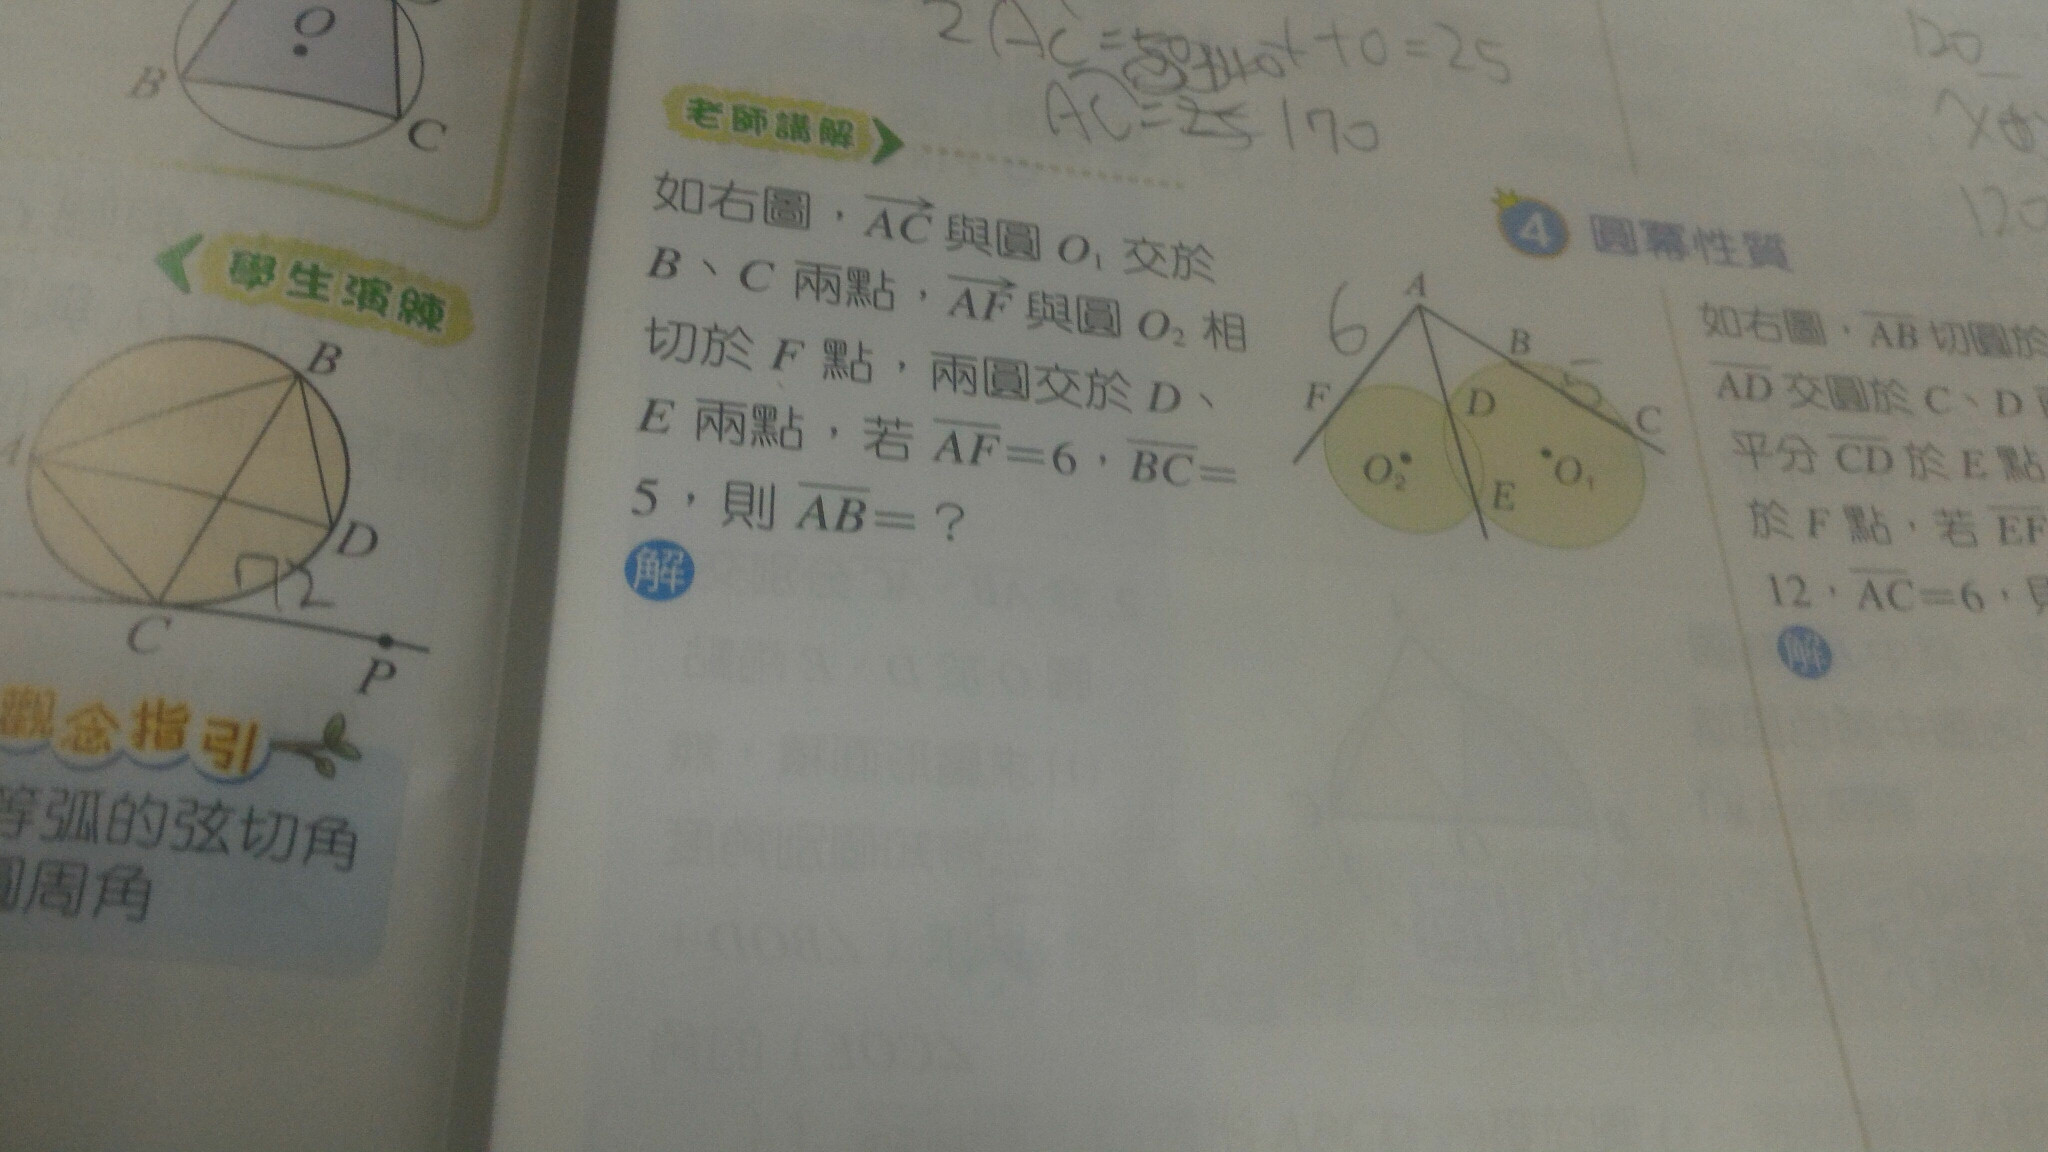 O
B
C
學生演練
B
A
D
72
C
P
觀念指引
等弧的弦切角
圓周角
2AC= ++0=25
AC=25 170
老師講解
如右圖，AC與圓 O₁ 交於
B、C 兩點，AF與圓 O₂ 相
切於 F 點，兩圓交於 D、
E 兩點，若 AF=6，BC=
5，則 AB=？
解
4 圓冪性質
6
A
B
5
F
D
C
O₂
O₁
E
120
120
如右圖，AB切圓於
AD 交圓於 C、D
平分 CD 於 E 點
於 F 點，若 EF
12，AC=6，
解